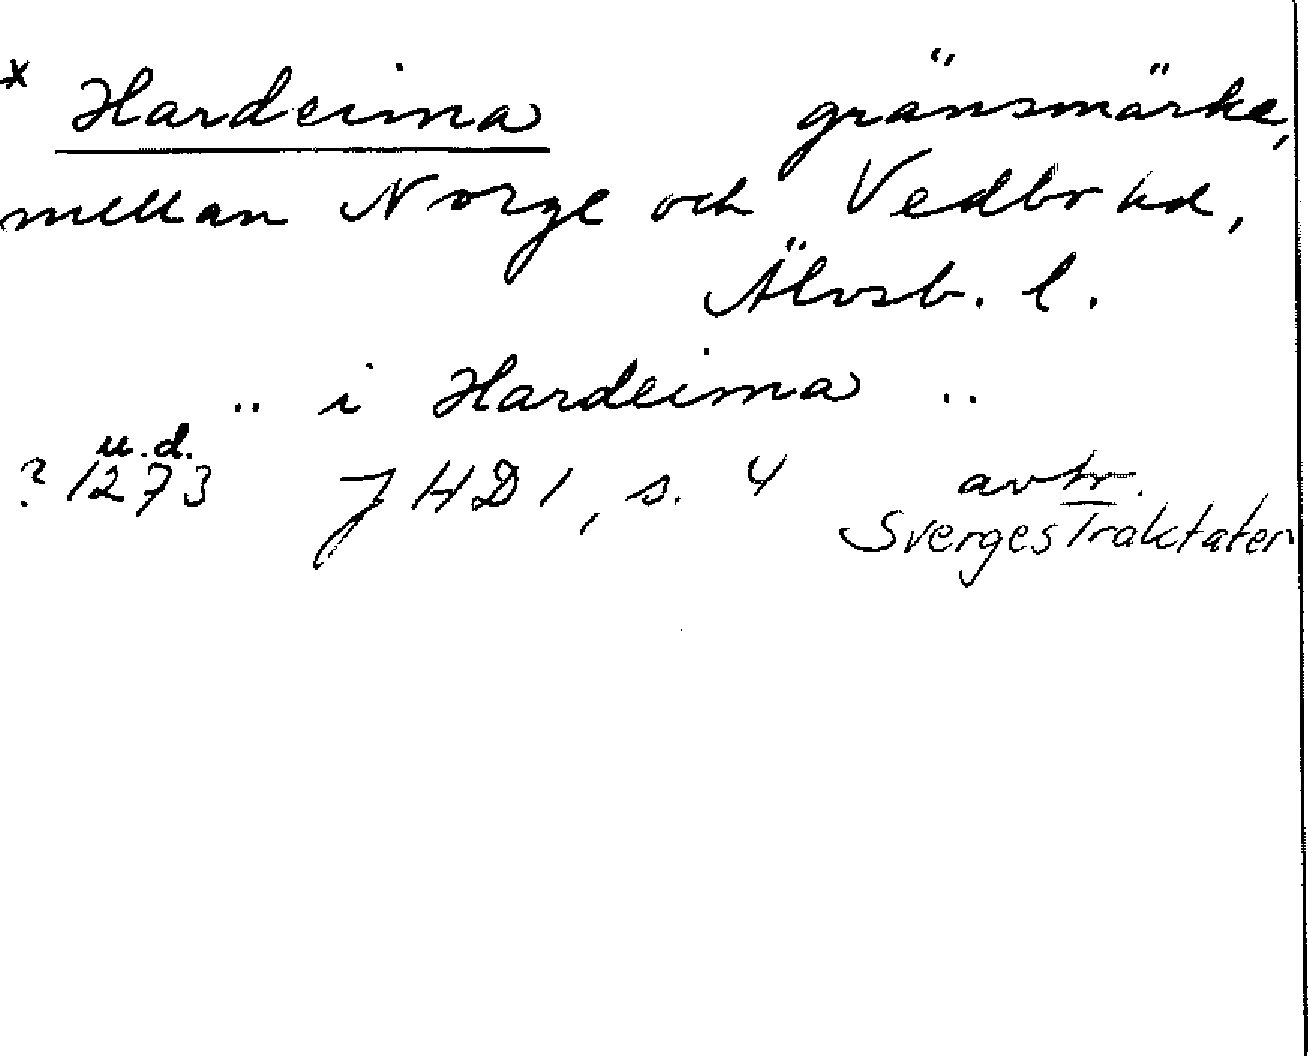 * Hardeima gränsmärke,
mellan Norge och Vedbo hd,
Älvsb. l.
.. i Hardeima ..
u.d.
? 1273 JHD 1, s. 4 avtr.
Sverges Traktater